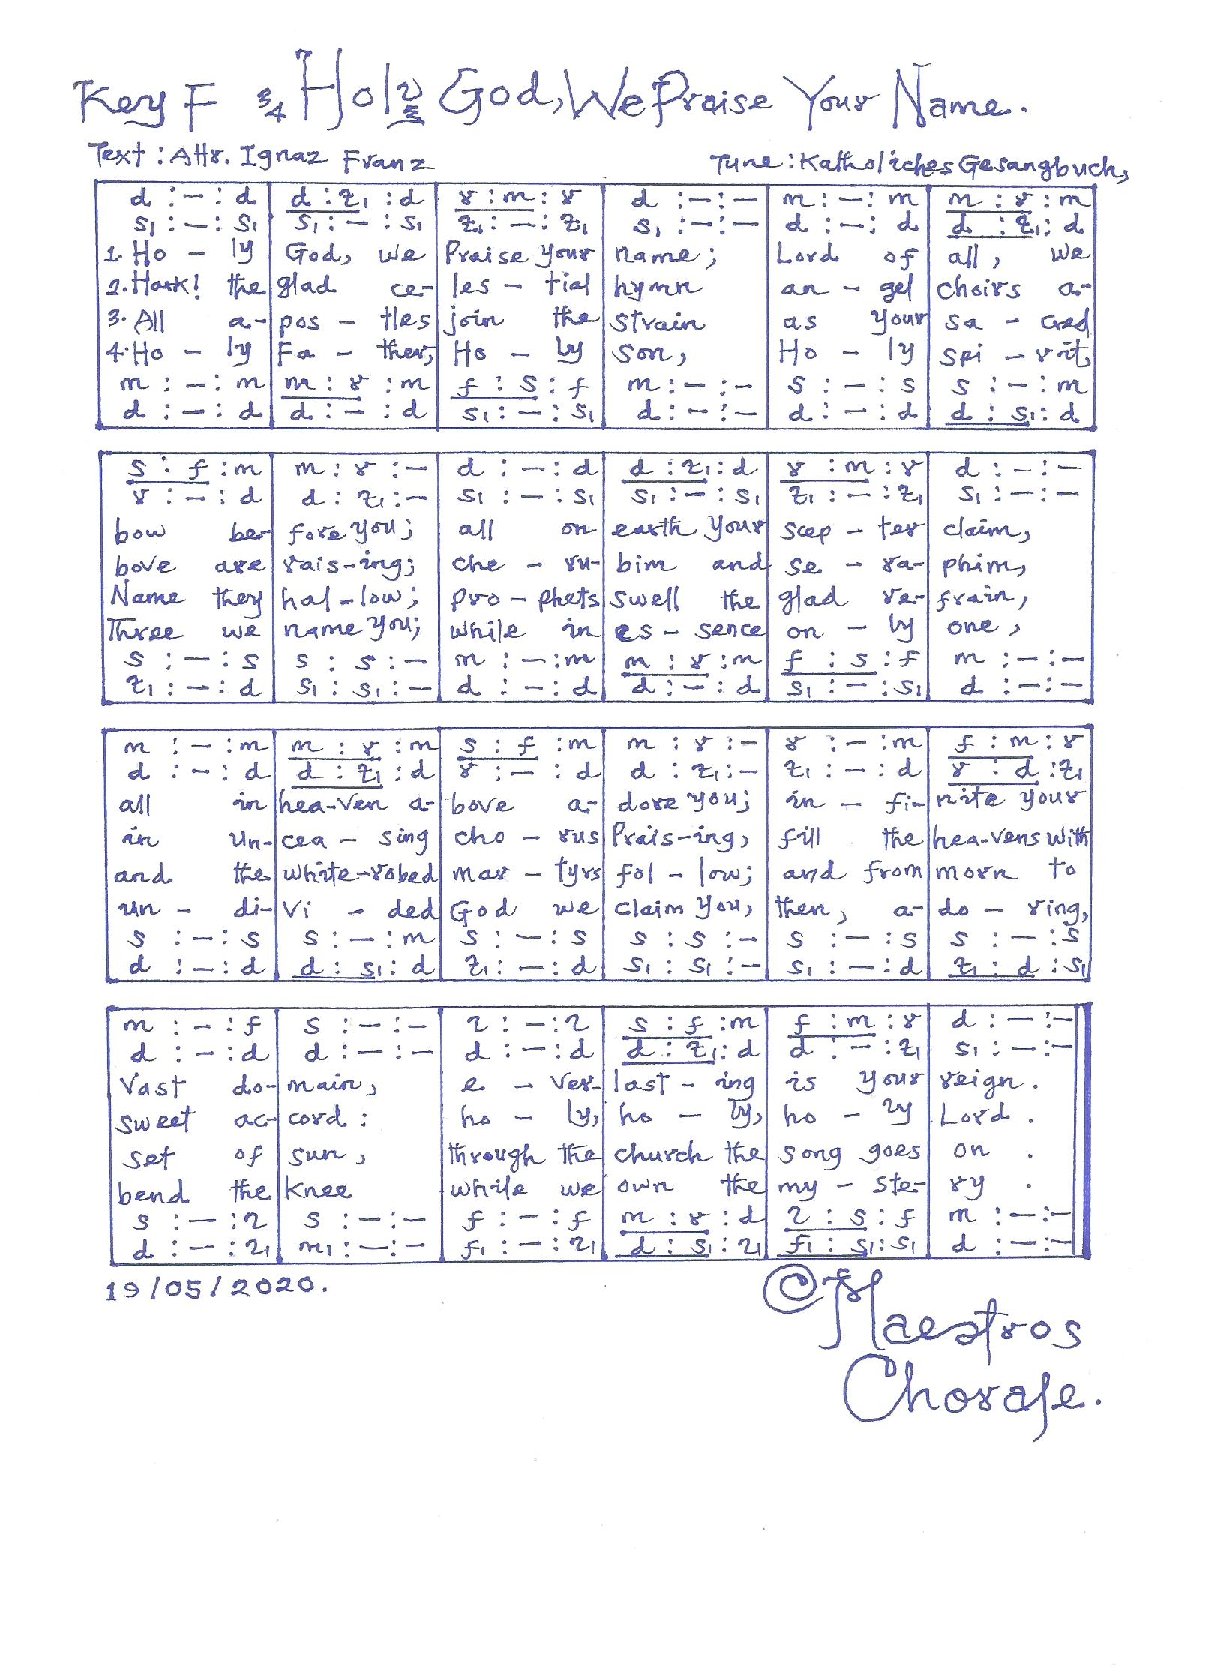 Key F 3/4 Holy God, We Praise Your Name.
Text: Attr. Ignaz Franz Tune: Katholiches Gesangbuch,
d : – : d | d : z₁ : d | r : m : r | d : – : – | m : – : m | m : r : m
s₁ : – : s₁ | s₁ : – : s₁ | z₁ : – : z₁ | s₁ : – : – | d : – : d | d : z₁ : d
1. Ho – ly | God, we | Praise your | name; | Lord of | all, we
2. Hark! the | glad ce- | les – tial | hymn | an – gel | choirs a-
3. All a- | pos – tles | join the | strain | as your | sa – cred
4. Ho – ly | Fa – ther, | Ho – ly | son, | Ho – ly | spi – rit,
m : – : m | m : r : m | f : s : f | m : – : – | s : – : s | s : – : m
d : – : d | d : – : d | s₁ : – : s₁ | d : – : – | d : – : d | d : s₁ : d
s : f : m | m : r : – | d : – : d | d : z₁ : d | r : m : r | d : – : –
r : – : d | d : z₁ : – | s₁ : – : s₁ | s₁ : – : s₁ | z₁ : – : z₁ | s₁ : – : –
bow be- | fore you; | all on | earth your | scep – ter | claim,
bove are | rais-ing; | che – ru- | bim and | se – ra- | phim,
Name they | hal – low; | pro – phets | swell the | glad re- | frain,
Three we | name you; | while in | es – sence | on – ly | one,
s : – : s | s : s : – | m : – : m | m : r : m | f : s : f | m : – : –
z₁ : – : d | s₁ : s₁ : – | d : – : d | d : – : d | s₁ : – : s₁ | d : – : –
m : – : m | m : r : m | s : f : m | m : r : – | r : – : m | f : m : r
d : – : d | d : z₁ : d | r : – : d | d : z₁ : – | z₁ : – : d | r : d : z₁
all in | hea-ven a- | bove a- | dore you; | in – fi- | nite your
in un- | cea – sing | cho – rus | Prais-ing, | fill the | hea-vens with
and the | white-robed | mar – tyrs | fol – low; | and from | morn to
un – di- | vi – ded | God we | claim you, | then, a- | do – ring,
s : – : s | s : – : m | s : – : s | s : s : – | s : – : s | s : – : s
d : – : d | d : s₁ : d | z₁ : – : d | s₁ : s₁ : – | s₁ : – : d | z₁ : d : s₁
m : – : f | s : – : – | l : – : l | s : f : m | f : m : r | d : – : –
d : – : d | d : – : – | d : – : d | d : z₁ : d | d : – : z₁ | s₁ : – : –
Vast do- | main, | e – ver- | last – ing | is your | reign.
sweet ac- | cord : | ho – ly, | ho – ly, | ho – ly | Lord .
set of | sun, | through the | church the | song goes | on .
bend the | knee | while we | own the | my – ste- | ry .
s : – : l | s : – : – | f : – : f | m : r : d | l : s : f | m : – : –
d : – : l₁ | m₁ : – : – | f₁ : – : l₁ | d : s₁ : l₁ | f₁ : s₁ : s₁ | d : – : –
19/05/2020.
© Maestros
Chorale.